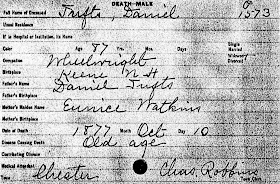 DEATH-MALE
Full Name of Deceased Tufts, Daniel 1573
Usual Residence
If in Hospital or Institution, its Name
Color Age 87 Years Months Days Single Married Widowed Divorced
Occupation Wheelwright
Birthplace Keene N H
Father's Name Daniel Tufts
Father's Birthplace
Mother's Maiden Name Eunice Watkins
Mother's Birthplace
Date of Death 1877 Month Oct Day 10
Disease Causing Death Old age
Contributing Disease
Medical Attendant
Town Chester Chas. Robbins
Town Clerk